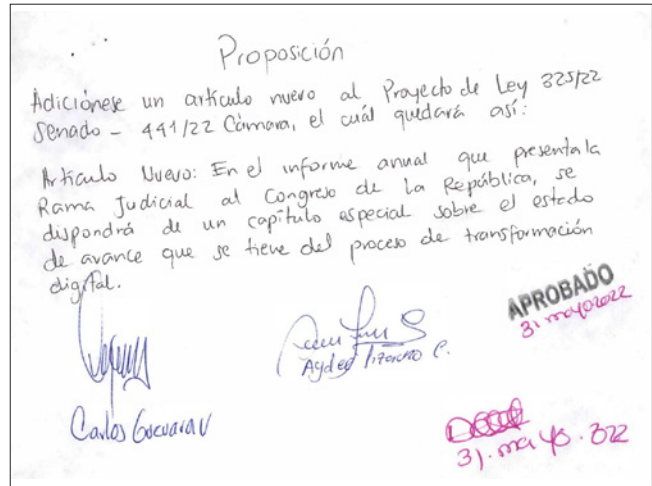 Proposición
Adiciónese un artículo nuevo al Proyecto de Ley 325/22
Senado - 441/22 Cámara, el cuál quedará así:
Artículo Nuevo: En el informe anual que presenta la
Rama Judicial al Congreso de La República, se
dispondrá de un capítulo especial sobre el estado
de avance que se tiene del proceso de transformación
digital.
APROBADO
31 mayo 2022
Aydeé Lizarazo C.
Carlos Guevara V
31. mayo. 322